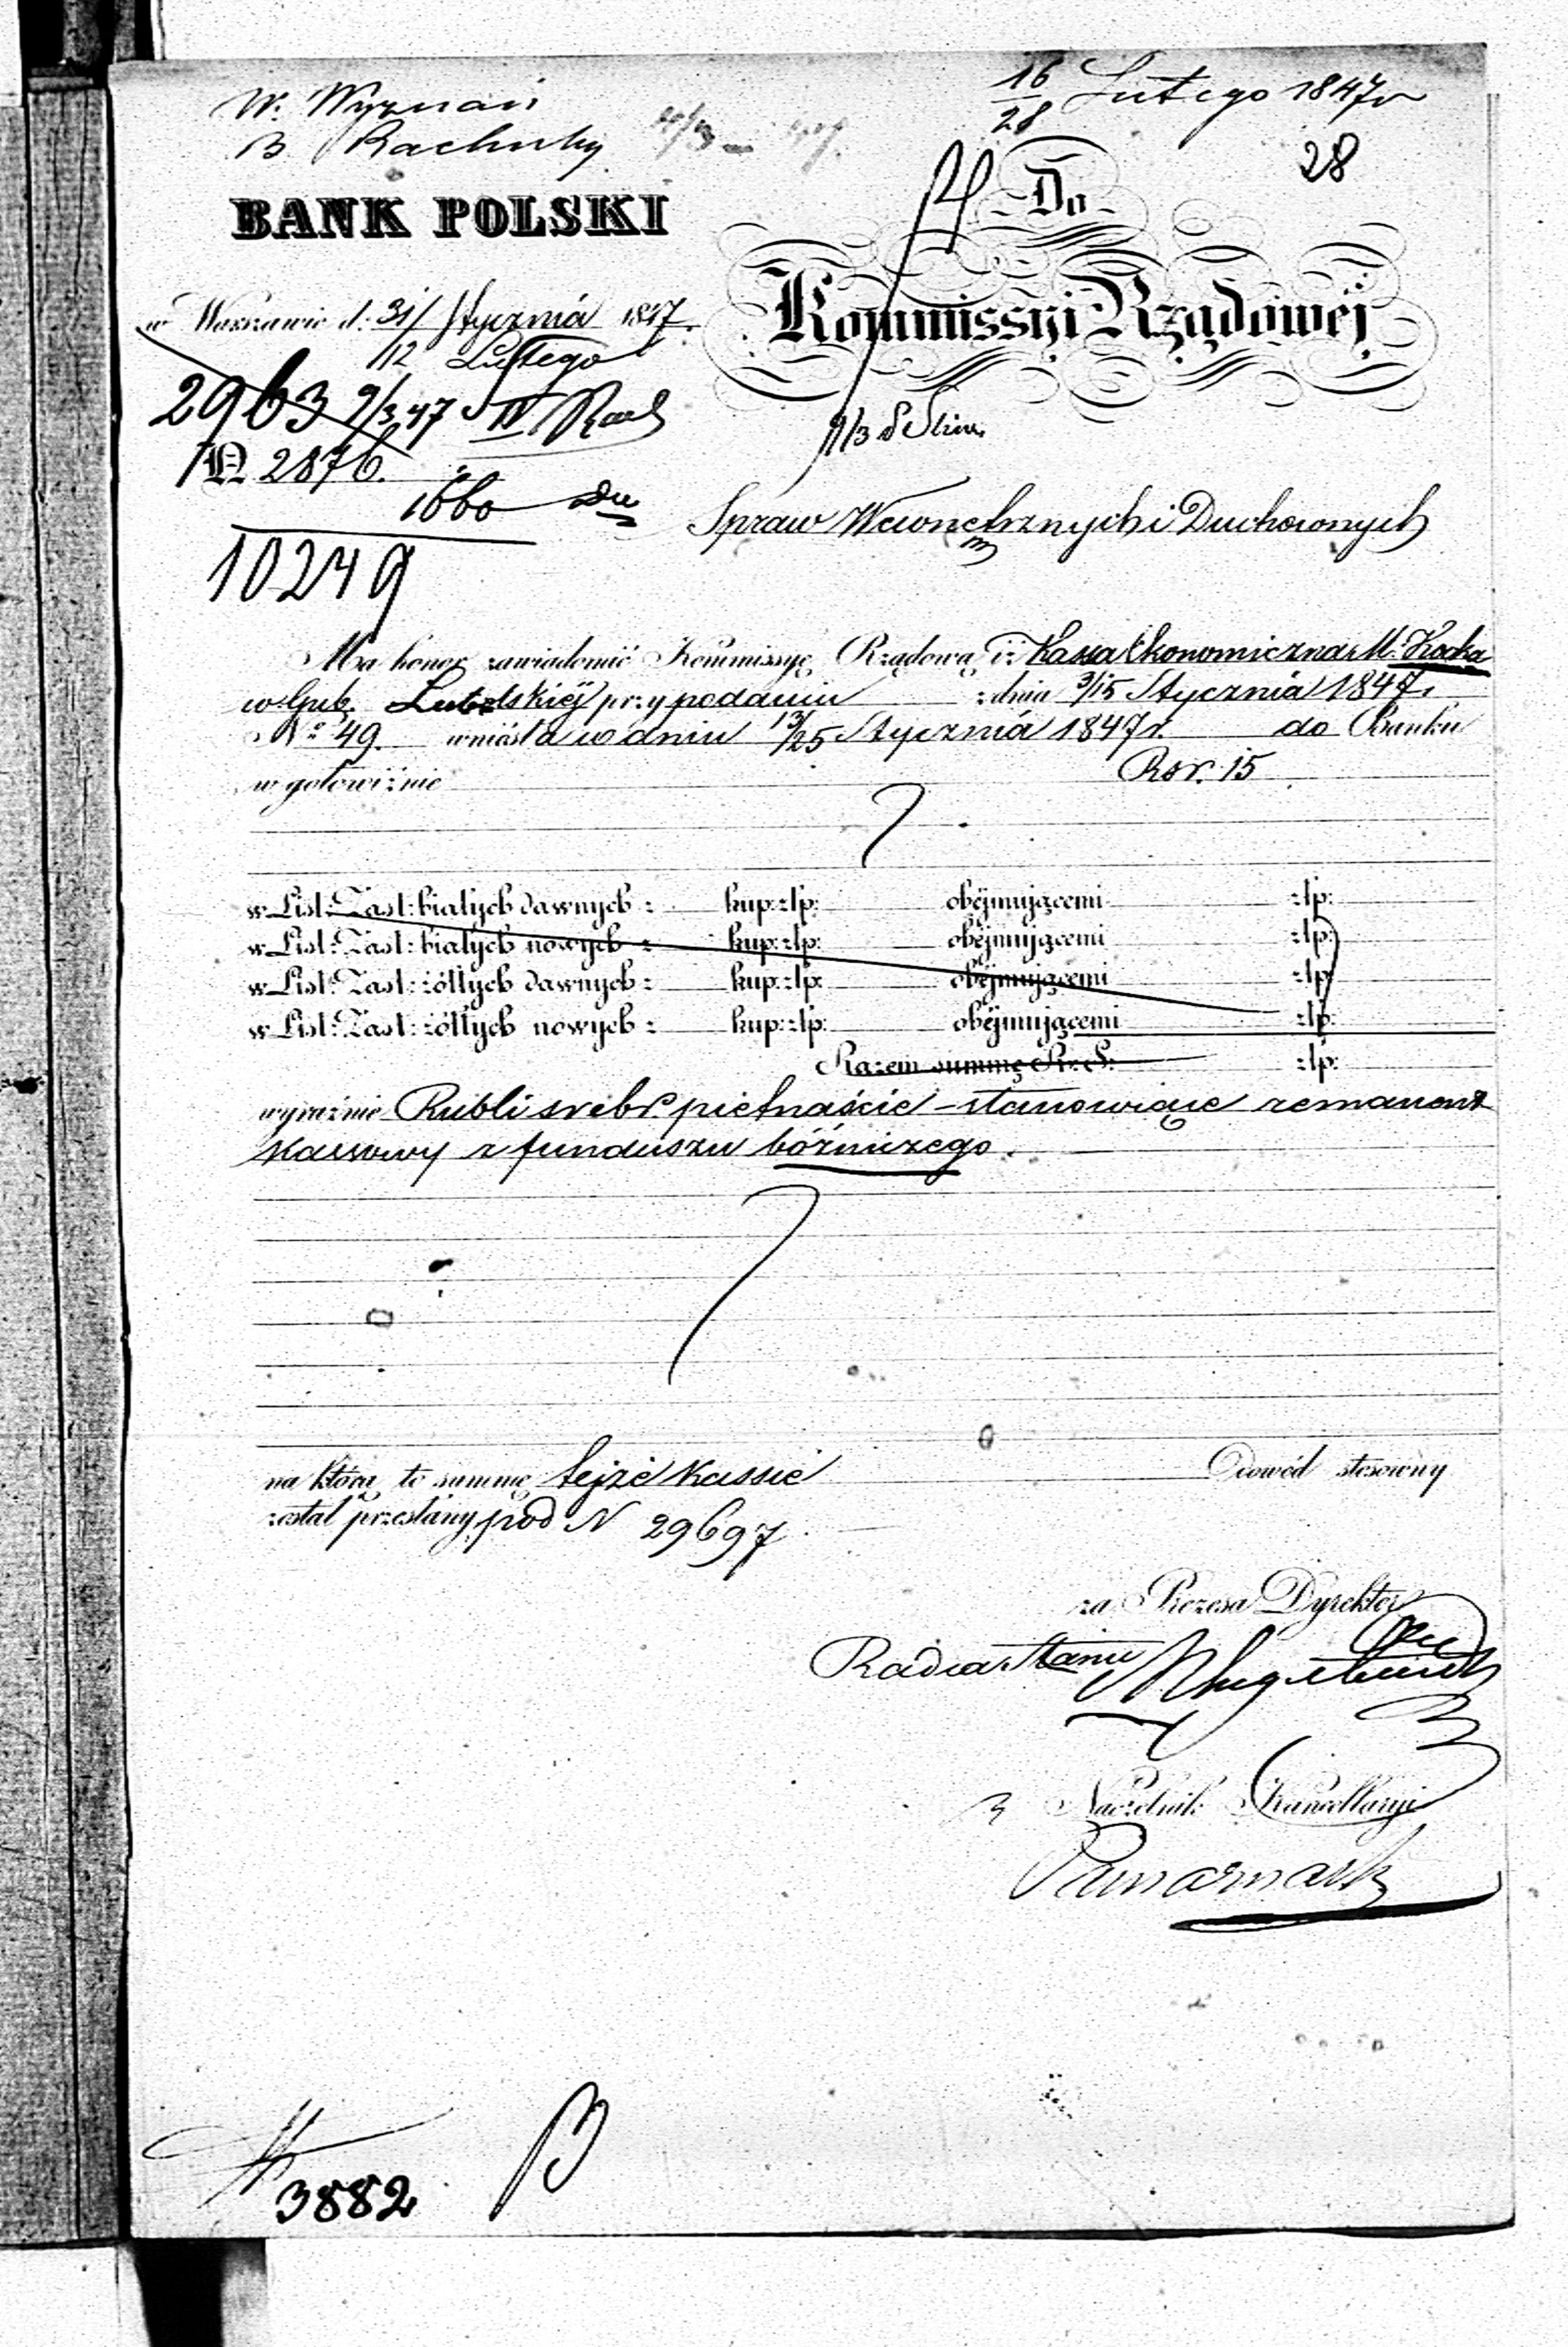 W. Wyznań
16/28 Lutego 1847 r
B Rachuby
28
BANK POLSKI
Do
Kommissyi Rządowéj
w Warszawie d: 31/12 Stycznia/Lutego 1847.
2963 9/3 47 IV Rach
9/3
N 2876.
1660
Spraw Wewnętrznych i Duchownych
10249
Ma honor zawiadomić Kommissyę Rządową iż Kassa Ekonomiczna M. Kocka
w Gub. Lubelskiéj przy podaniu z dnia 3/15 Stycznia 1847 r.
No 49. wniosła w dniu 13/25 Stycznia 1847 r. do Banku
w gotowiźnie Rsr. 15
w List: Zast: białych dawnych: kup: złp: obéjmującemi złp:
w List: Zast: białych nowych: kup: złp: obéjmującemi złp:
w List: Zast: żółtych dawnych: kup: złp: obéjmującemi złp:
w List: Zast: żółtych nowych: kup: złp: obéjmującemi złp:
Razem summę R: S: złp:
wyraźnie Rubli srebr piętnaście – stanowiące remanent
kassowy z funduszu bóżniczego.
na którą to summę tejże Kassie Dowód stosowny
został przesłany pod N 29697
za Prezesa Dyrektor
Radca Stanu
Naczelnik Kancellaryi
3882
B